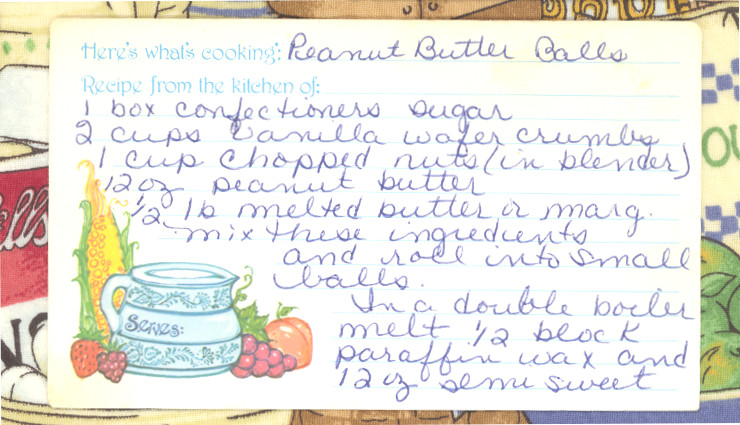 Here's what's cooking: Peanut Butter Balls
Recipe from the kitchen of:
1 box confectioners sugar
2 cups vanilla wafer crumbs
1 cup chopped nuts (in blender)
12 oz peanut butter
1/2 lb melted butter or marg.
mix these ingredients
and roll into small
balls.
In a double boiler
melt 1/2 block
paraffin wax and
12 oz semi sweet
Serves: